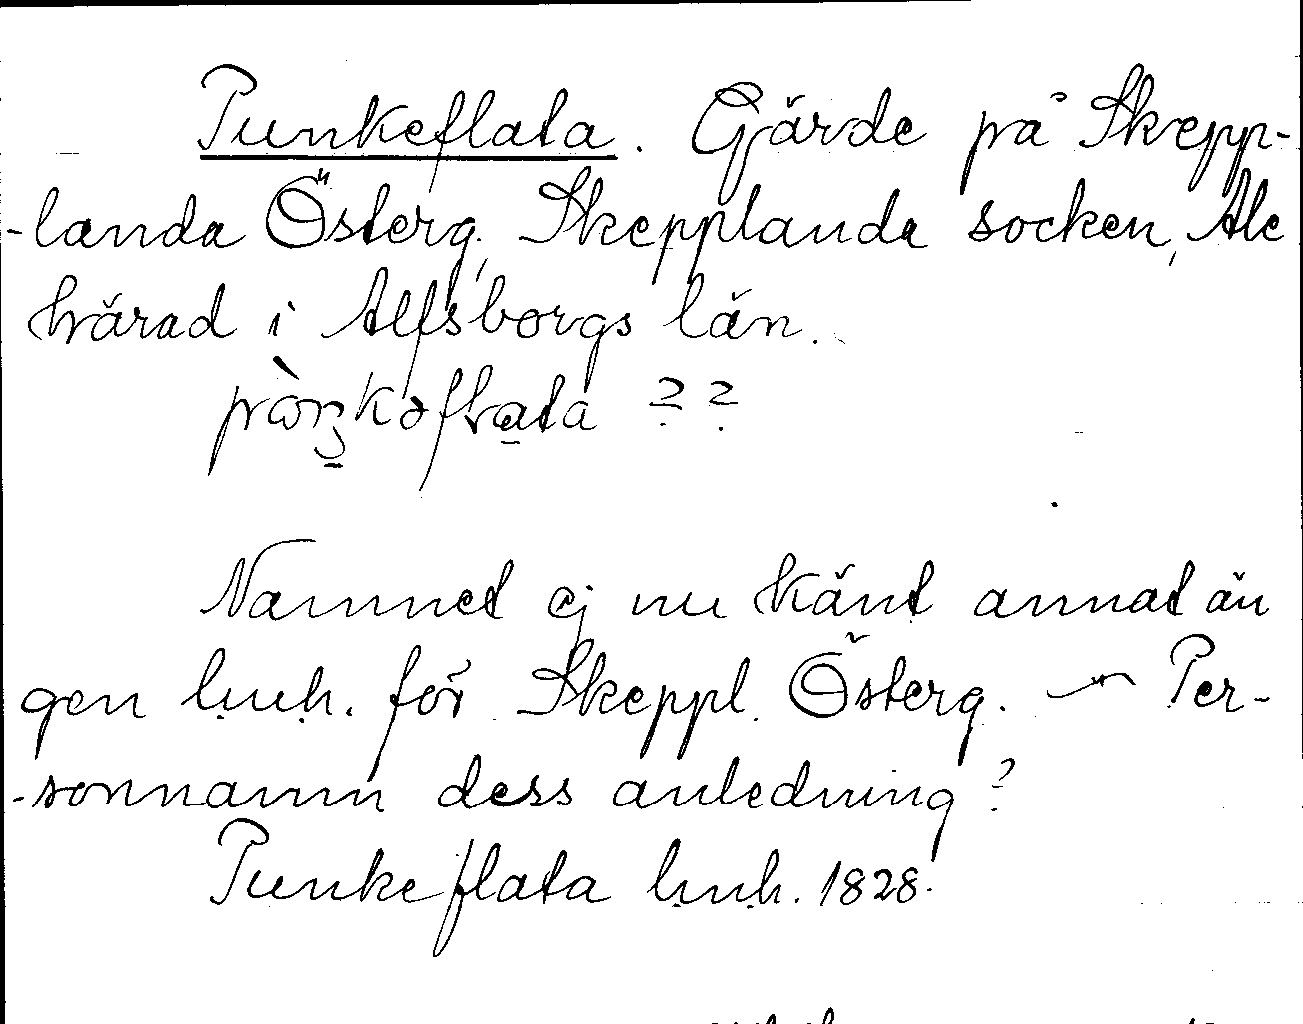 Punkeflata. Gärde på Skepp-
-landa Österg, Skepplanda socken, Ale
härad i Alfsborgs län.
?? 
Namnet ej nu känt annat än
gen l.u.h. för Skeppl. Österg. — Per-
-sonnamn dess anledning?
Punkeflata l.u.h. 1828.